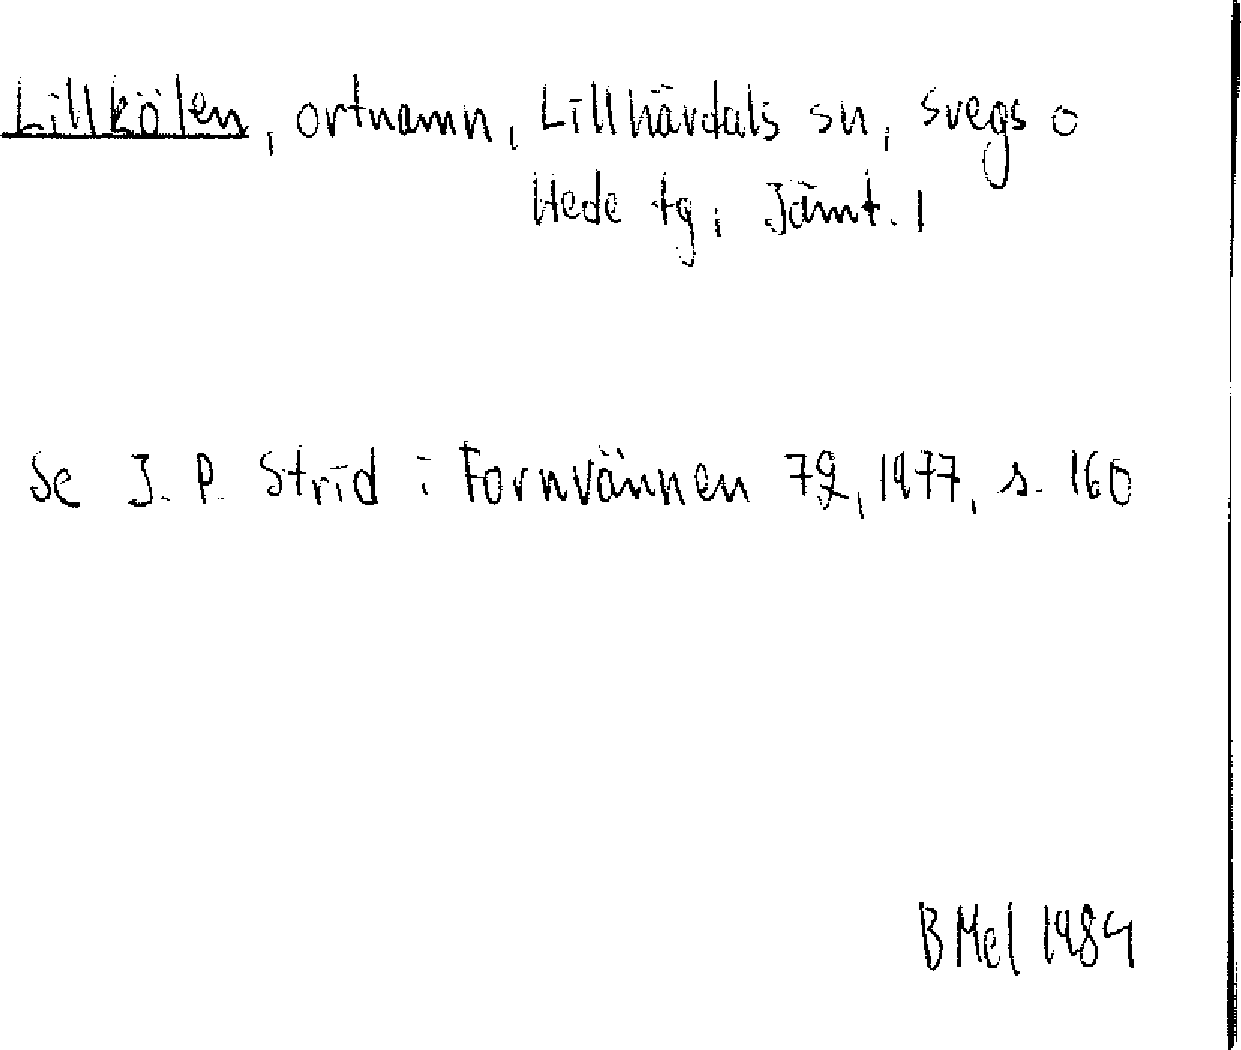 Lillkölen, ortnamn, Lillhärdals sn, Svegs o
Hede tg, Jämt. l
Se J. P. Strid i Fornvännen 72, 1977, s. 160
B Mel 1984